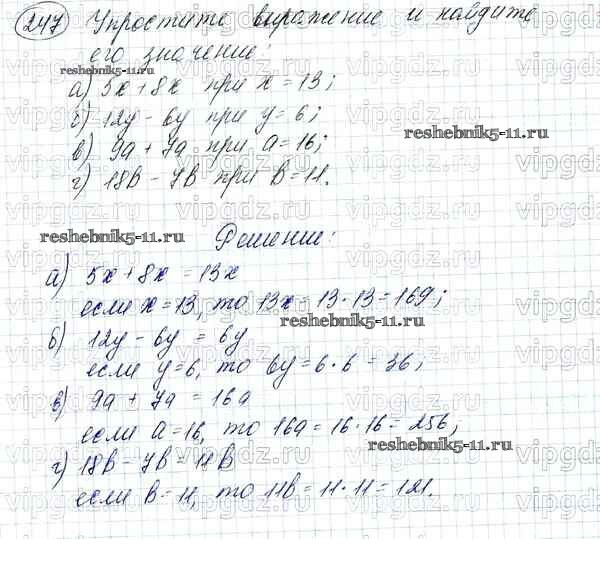 247 Упростите выражение и найдите
его значение:
reshebnik5-11.ru
а) 5x + 8x при x = 13;
б) 12y - 6y при y = 6;
reshebnik5-11.ru
в) 9a + 7a при a = 16;
г) 18b - 7b при b = 11.
reshebnik5-11.ru
Решение:
а) 5x + 8x = 13x
если x = 13, то 13x = 13 · 13 = 169;
reshebnik5-11.ru
б) 12y - 6y = 6y
если y = 6, то 6y = 6 · 6 = 36;
в) 9a + 7a = 16a
если a = 16, то 16a = 16 · 16 = 256,
reshebnik5-11.ru
г) 18b - 7b = 11b
если b = 11, то 11b = 11 · 11 = 121.
vipgdz.ru